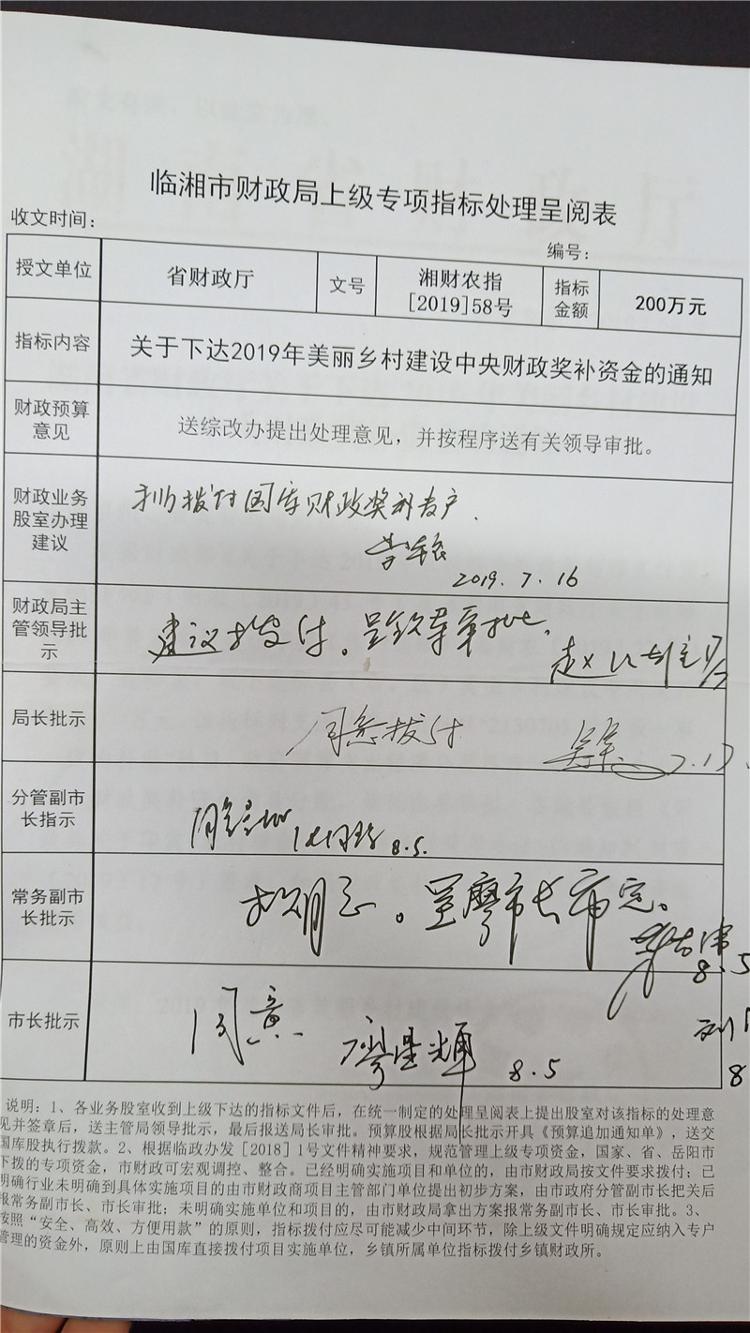 临湘市财政局上级专项指标处理呈阅表
收文时间：
编号：
授文单位 省财政厅 文号 湘财农指[2019]58号 指标金额 200万元
指标内容 关于下达2019年美丽乡村建设中央财政奖补资金的通知
财政预算意见 送综改办提出处理意见，并按程序送有关领导审批。
财政业务股室办理建议
拨付国库财政奖补专户.
2019.7.16
财政局主管领导批示
建议拨付。呈 审批.
局长批示
同意拨付
7.17.
分管副市长指示
8.5.
常务副市长批示
拟同意。呈廖市长审定。
8.5
市长批示
同意
廖星辉 8.5
刘
8
说明：1、各业务股室收到上级下达的指标文件后，在统一制定的处理呈阅表上提出股室对该指标的处理意
见并签章后，送主管局领导批示，最后报送局长审批。预算股根据局长批示开具《预算追加通知单》，送交
国库股执行拨款。2、根据临政办发［2018］1号文件精神要求，规范管理上级专项资金，国家、省、岳阳市
下拨的专项资金，市财政可宏观调控、整合。已经明确实施项目和单位的，由市财政局按文件要求拨付；已
明确行业未明确到具体实施项目的由市财政商项目主管部门单位提出初步方案，由市政府分管副市长把关后
报常务副市长、市长审批；未明确实施单位和项目的，由市财政局拿出方案报常务副市长、市长审批。3、
按照“安全、高效、方便用款”的原则，指标拨付应尽可能减少中间环节，除上级文件明确规定应纳入专户
管理的资金外，原则上由国库直接拨付项目实施单位，乡镇所属单位指标拨付乡镇财政所。